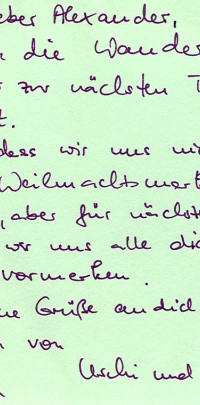 eber Alexander,
die Wander
zur nächsten T
t.
dass wir uns mi
Weihnachtsmart
, aber für nächst
wir uns alle die
vormerken.
ue Grüße an dich
n von
Uschi und